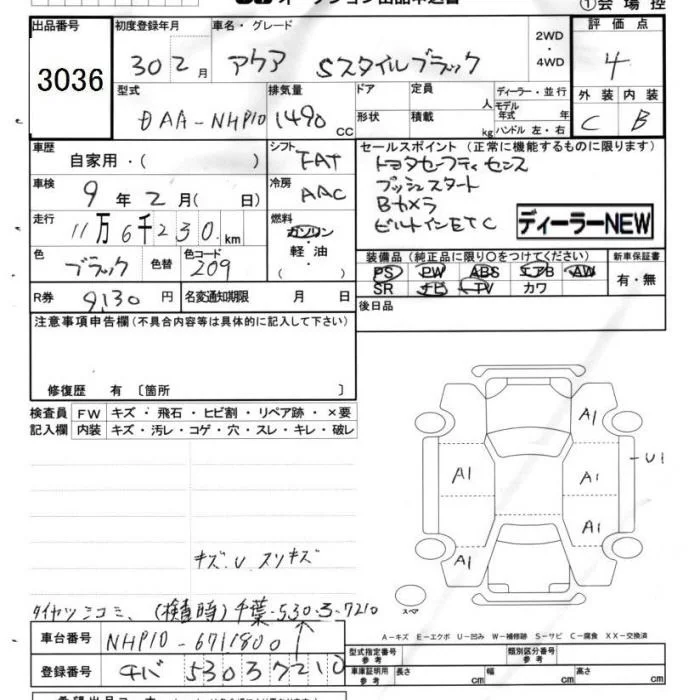 ①会場控
出品番号
3036
初度登録年月
30 2 月
車名・グレード
アクア Sスタイルブラック
2WD
・
4WD
評価点
4
外装 内装
C B
型式
DAA-NHP10
排気量
1490 CC
ドア
形状
定員 人
積載 kg
ディーラー・並行
モデル年式 年
ハンドル 左・右
車歴
自家用・( )
シフト
FAT
車検
9 年 2 月( 日)
冷房
AAC
走行
11万6千230 km
燃料
ガソリン
軽・油
・( )
色
ブラック
色替
色コード
209
R券
9,130 円
名変通知期限 月 日
セールスポイント (正常に機能するものに限ります)
トヨタセーフティセンス
プッシュスタート
Bカメラ
ビルトインETC
ディーラーNEW
装備品 (純正品に限り○をつけてください)
PS PW ABS エアB AW
SR ナビ TV カワ
新車保証書
有・無
後日品
注意事項申告欄 (不具合内容等は具体的に記入して下さい)
修復歴 有 〔箇所 〕
検査員 FW キズ・飛石・ヒビ割・リペア跡・×要
記入欄 内装 キズ・汚レ・コゲ・穴・スレ・キレ・破レ
A1
U1
A1
A1
A1
A1
キズ.U スリキズ
スペア
タイヤツミコミ、(検査時)千葉530.3.7210
A-キズ E-エクボ U-凹み W-補修跡 S-サビ C-腐食 XX-交換済
車台番号
NHP10-6711800
登録番号
チバ 530 ス 7210
型式指定番号
参考
類別区分番号
参考
車庫証明用
参考
長さ cm
幅 cm
高さ cm